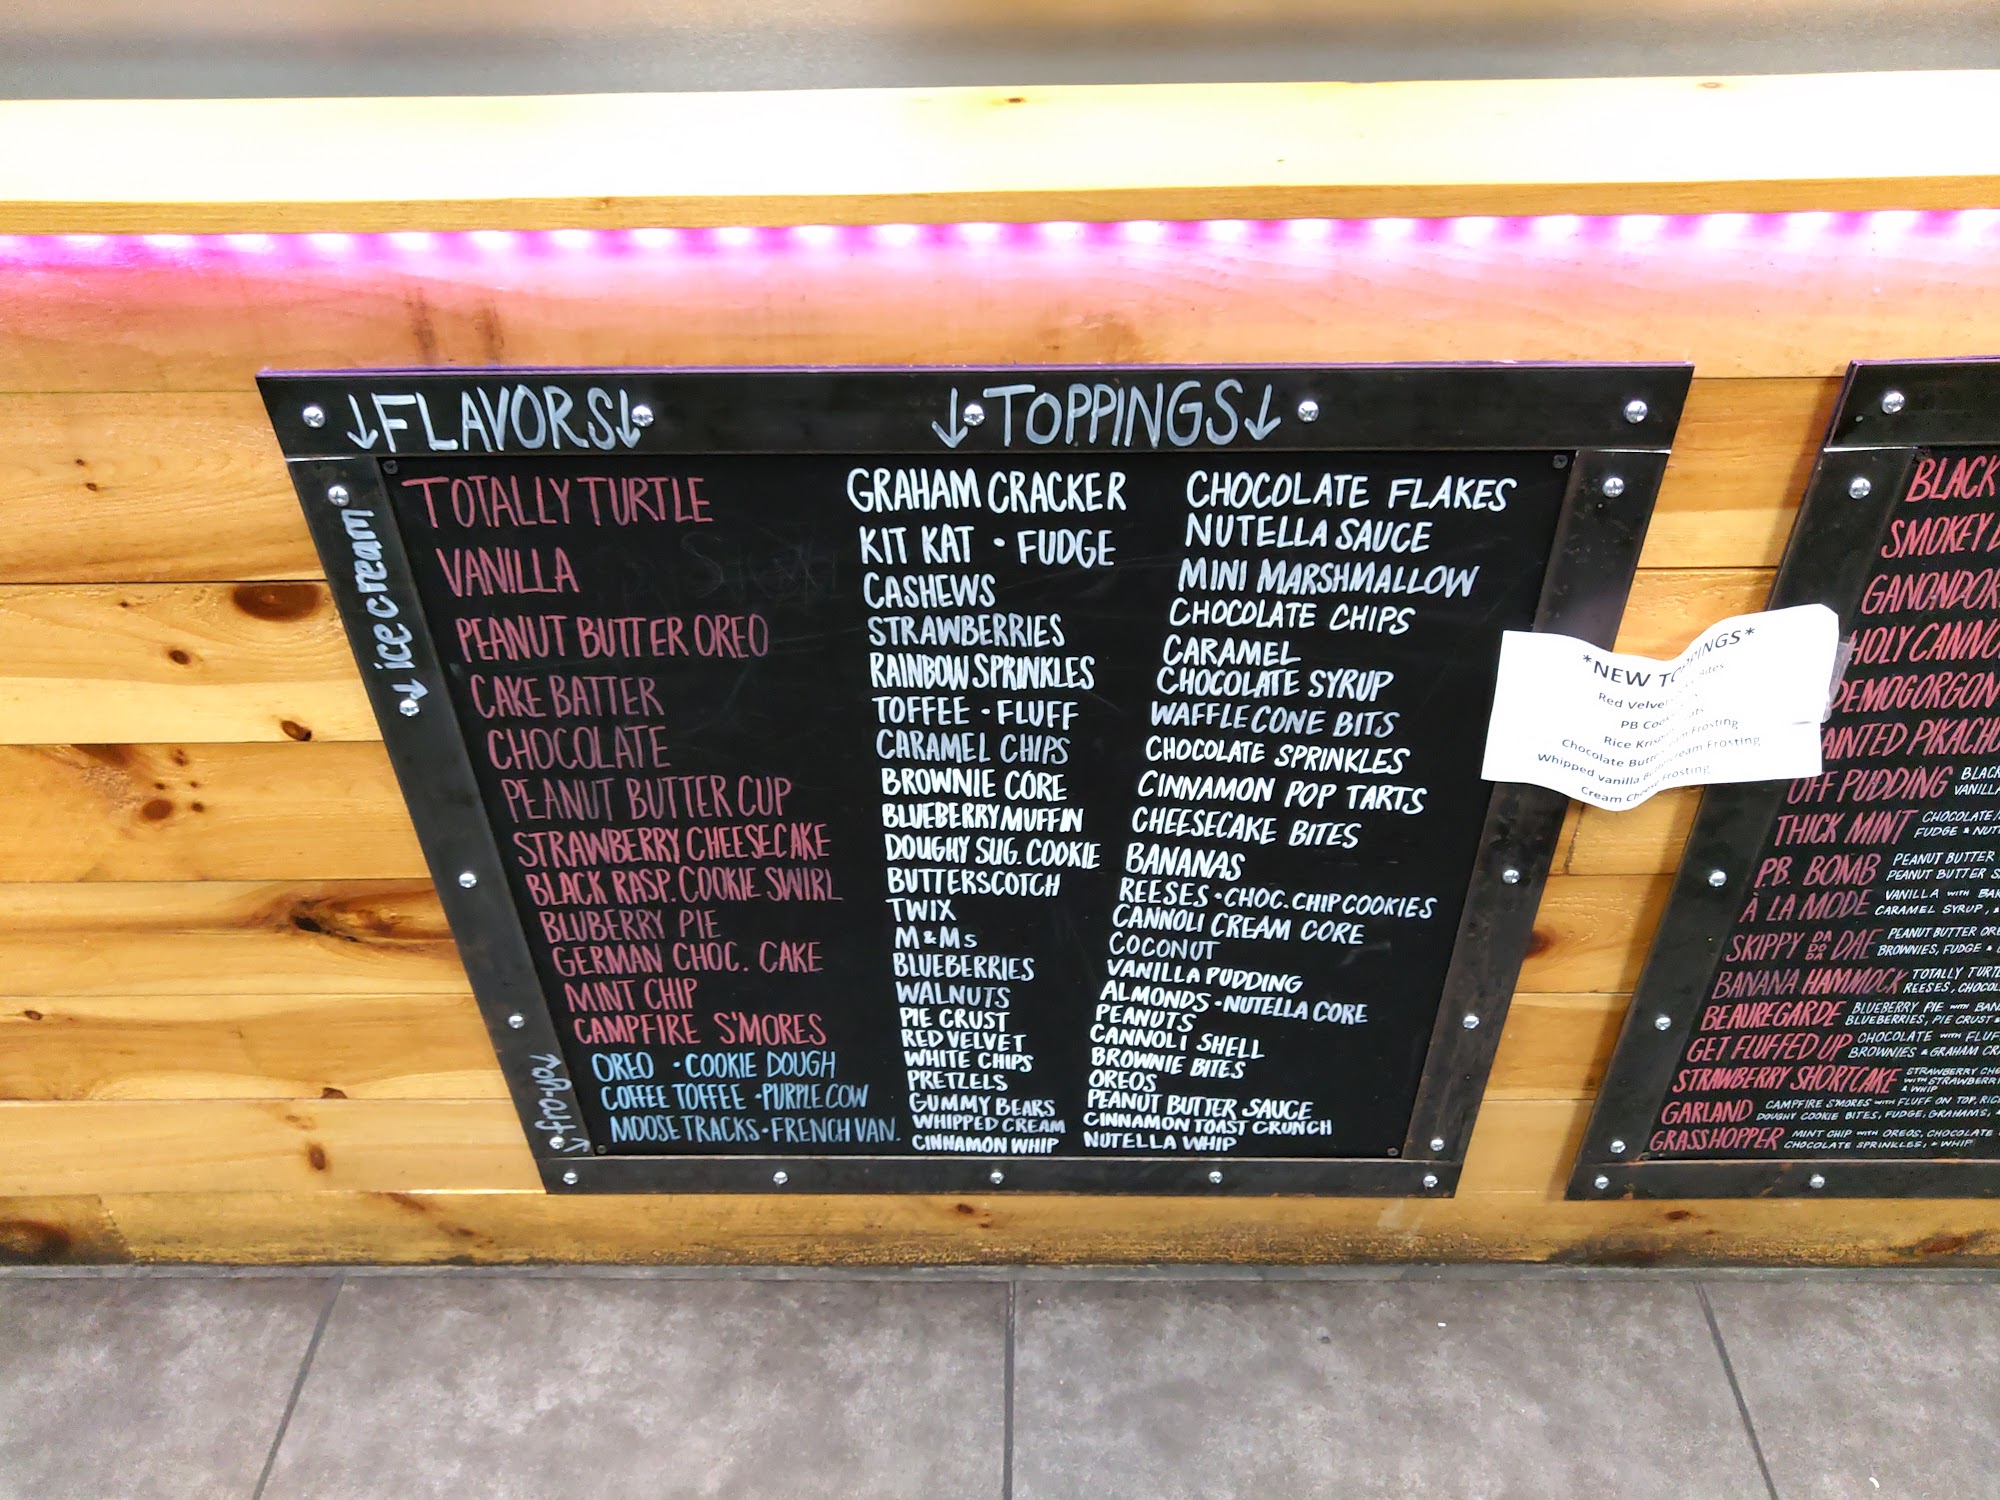 ↓FLAVORS↓
ice cream
TOTALLY TURTLE
VANILLA
PEANUT BUTTER OREO
CAKE BATTER
CHOCOLATE
PEANUT BUTTER CUP
STRAWBERRY CHEESECAKE
BLACK RASP. COOKIE SWIRL
BLUBERRY PIE
GERMAN CHOC. CAKE
MINT CHIP
CAMPFIRE S'MORES
fro-yo
OREO • COOKIE DOUGH
COFFEE TOFFEE • PURPLE COW
MOOSETRACKS • FRENCH VAN.
↓TOPPINGS↓
GRAHAM CRACKER
KIT KAT • FUDGE
CASHEWS
STRAWBERRIES
RAINBOW SPRINKLES
TOFFEE • FLUFF
CARAMEL CHIPS
BROWNIE CORE
BLUEBERRY MUFFIN
DOUGHY SUG. COOKIE
BUTTERSCOTCH
TWIX
M&Ms
BLUEBERRIES
WALNUTS
PIE CRUST
RED VELVET
WHITE CHIPS
PRETZELS
GUMMY BEARS
WHIPPED CREAM
CINNAMON WHIP
CHOCOLATE FLAKES
NUTELLA SAUCE
MINI MARSHMALLOW
CHOCOLATE CHIPS
CARAMEL
CHOCOLATE SYRUP
WAFFLE CONE BITS
CHOCOLATE SPRINKLES
CINNAMON POP TARTS
CHEESECAKE BITES
BANANAS
REESES • CHOC. CHIP COOKIES
CANNOLI CREAM CORE
COCONUT
VANILLA PUDDING
ALMONDS • NUTELLA CORE
PEANUTS
CANNOLI SHELL
BROWNIE BITES
OREOS
PEANUT BUTTER SAUCE
CINNAMON TOAST CRUNCH
NUTELLA WHIP
*NEW TOPPINGS*
Red Velvet Bites
PB
Rice
Chocolate Frosting
Whipped vanilla Frosting
Cream Frosting
BLACK
SMOKEY
GANONDOR
HOLY
DEMOGORGON
AINTED PIKACHU
OFF PUDDING BLACK
VANILLA
THICK MINT CHOCOLATE
FUDGE & NUT
P.B. BOMB PEANUT BUTTER
PEANUT BUTTER
À LA MODE VANILLA WITH
CARAMEL SYRUP,
SKIPPY DA DO BA DAE PEANUT BUTTER
BROWNIES, FUDGE &
BANANA HAMMOCK TOTALLY
REESES,
BEAUREGARDE BLUEBERRY PIE WITH
BLUEBERRIES, PIE CRUST
GET FLUFFED UP CHOCOLATE WITH
BROWNIES & GRAHAM
STRAWBERRY SHORTCAKE STRAWBERRY
WITH
& WHIP
GARLAND CAMPFIRE S'MORES WITH FLUFF ON TOP,
DOUGHY COOKIE BITES, FUDGE, GRAHAMS,
GRASSHOPPER MINT CHIP WITH OREOS, CHOCOLATE
CHOCOLATE SPRINKLES, & WHIP